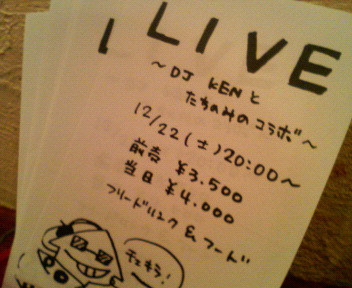 LIVE
〜DJ KENと
たちのみのコラボ〜
12/22(土)20:00〜
前売 ¥3.500
当日 ¥4.000
フリードリンク&フード
チェキラ!